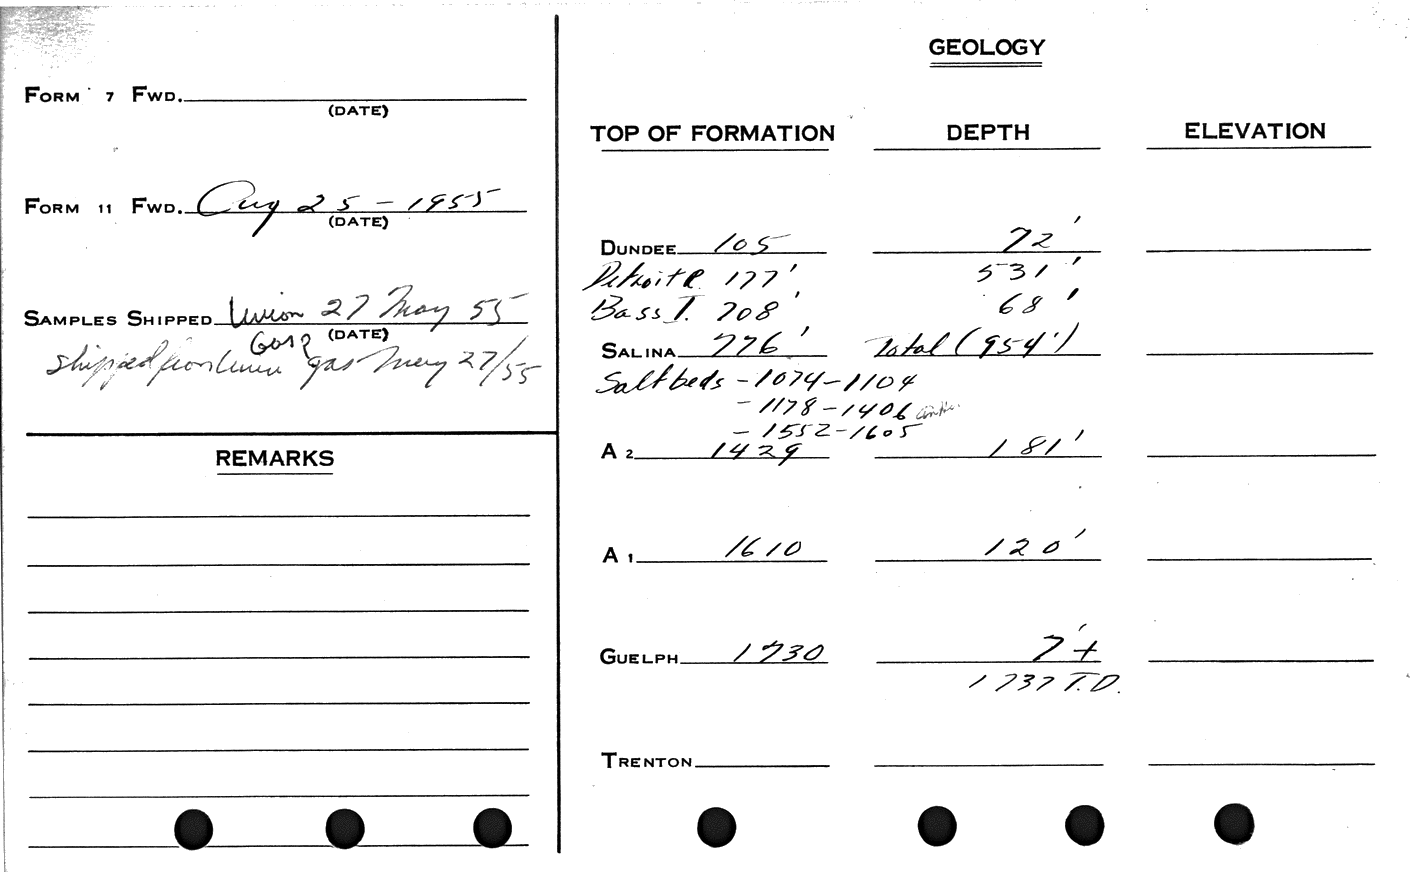 FORM 7 FWD.
(DATE)
FORM 11 FWD. Aug 25 - 1955
(DATE)
SAMPLES SHIPPED Union 27 May 55
Gas (DATE)
shipped from Union gas May 27/55
REMARKS
GEOLOGY
TOP OF FORMATION DEPTH ELEVATION
DUNDEE 105 72'
Detroit R. 177' 531'
Bass I. 708' 68'
SALINA 776' Total (954')
Salt beds - 1074 - 1104
- 1178 - 1406
- 1552 - 1605
A 2 1429 181'
A 1 1610 120'
GUELPH 1730 7'+
1737 T.D.
TRENTON